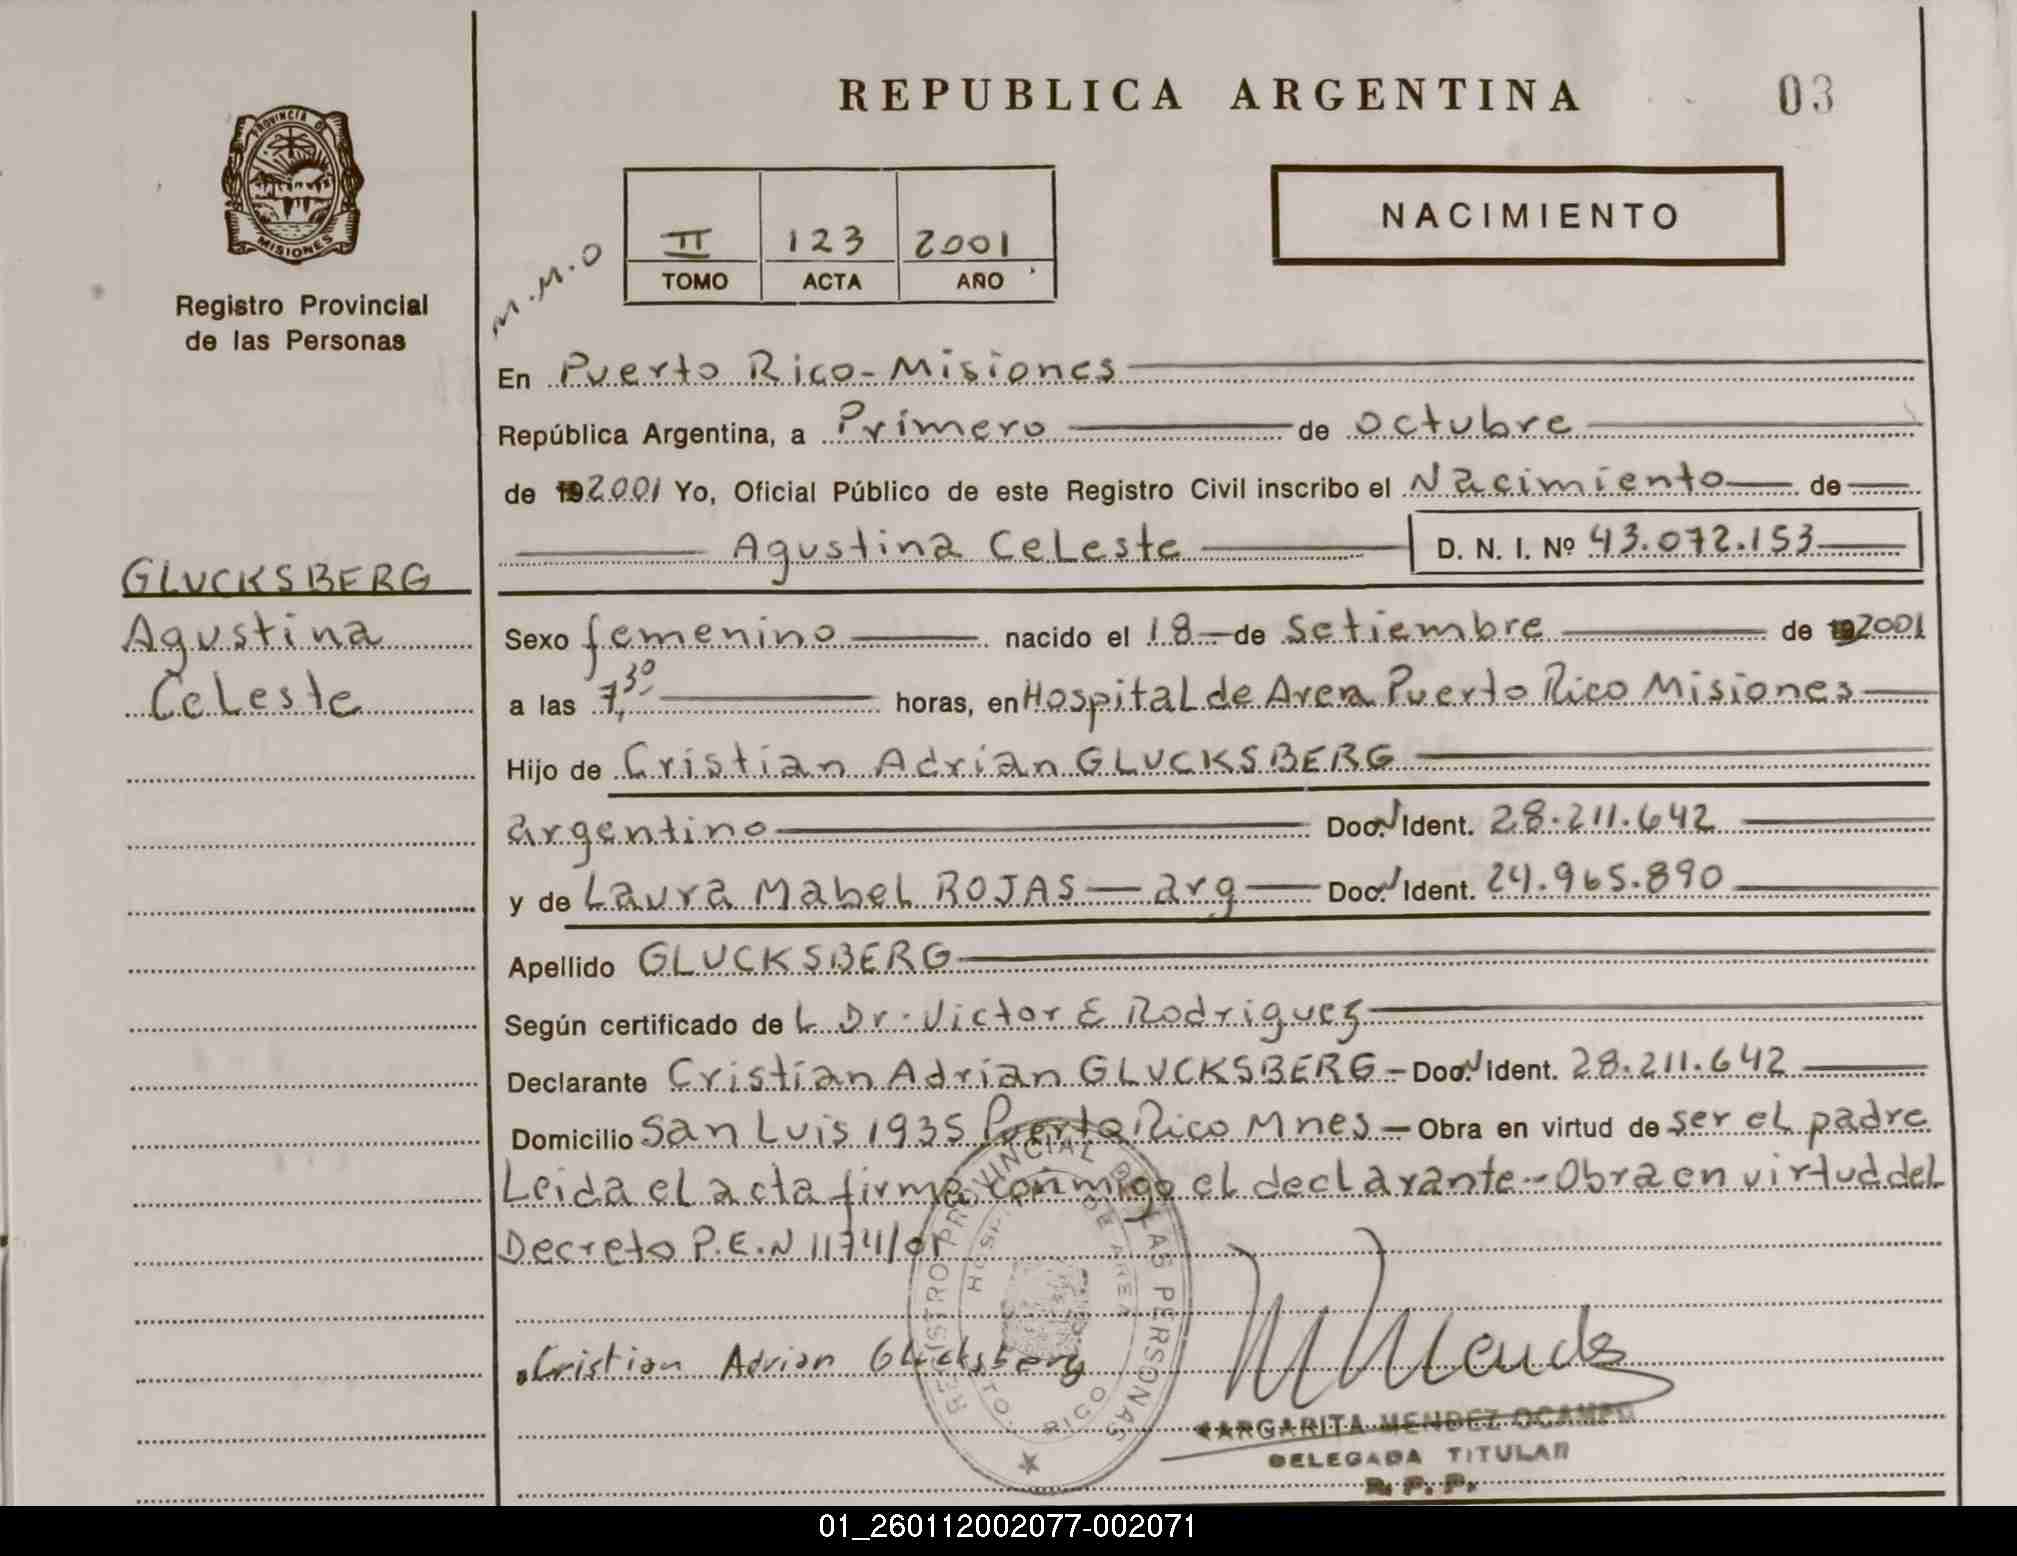 REPUBLICA ARGENTINA
03
PROVINCIA DE
MISIONES
Registro Provincial
de las Personas
M.M.O
II 123 2001
TOMO ACTA AÑO
NACIMIENTO
En Puerto Rico - Misiones
República Argentina, a Primero de octubre
de 192001 Yo, Oficial Público de este Registro Civil inscribo el Nacimiento de
Agustina Celeste D. N. I. Nº 43.072.153
GLUCKSBERG
Agustina
Celeste
Sexo femenino nacido el 18 de Setiembre de 192001
a las 7,30 horas, en Hospital de Area Puerto Rico Misiones
Hijo de Cristian Adrian GLUCKSBERG
argentino Doc. Ident. 28.211.642
y de Laura Mabel ROJAS - arg - Doc. Ident. 24.965.890
Apellido GLUCKSBERG
Según certificado de L Dr. Victor E Rodriguez
Declarante Cristian Adrian GLUCKSBERG - Doc. Ident. 28.211.642
Domicilio San Luis 1935 Puerto Rico Mnes - Obra en virtud de ser el padre
Leida el acta firma conmigo el declarante - Obra en virtud del
Decreto P.E.N 1174/01
Cristian Adrian Glucksberg
REGISTRO PROVINCIAL DE LAS PERSONAS
HOSPITAL DE AREA
PTO. RICO
M Mendez
MARGARITA MENDEZ OCAMPO
DELEGADA TITULAR
R. P. P.
01_260112002077-002071